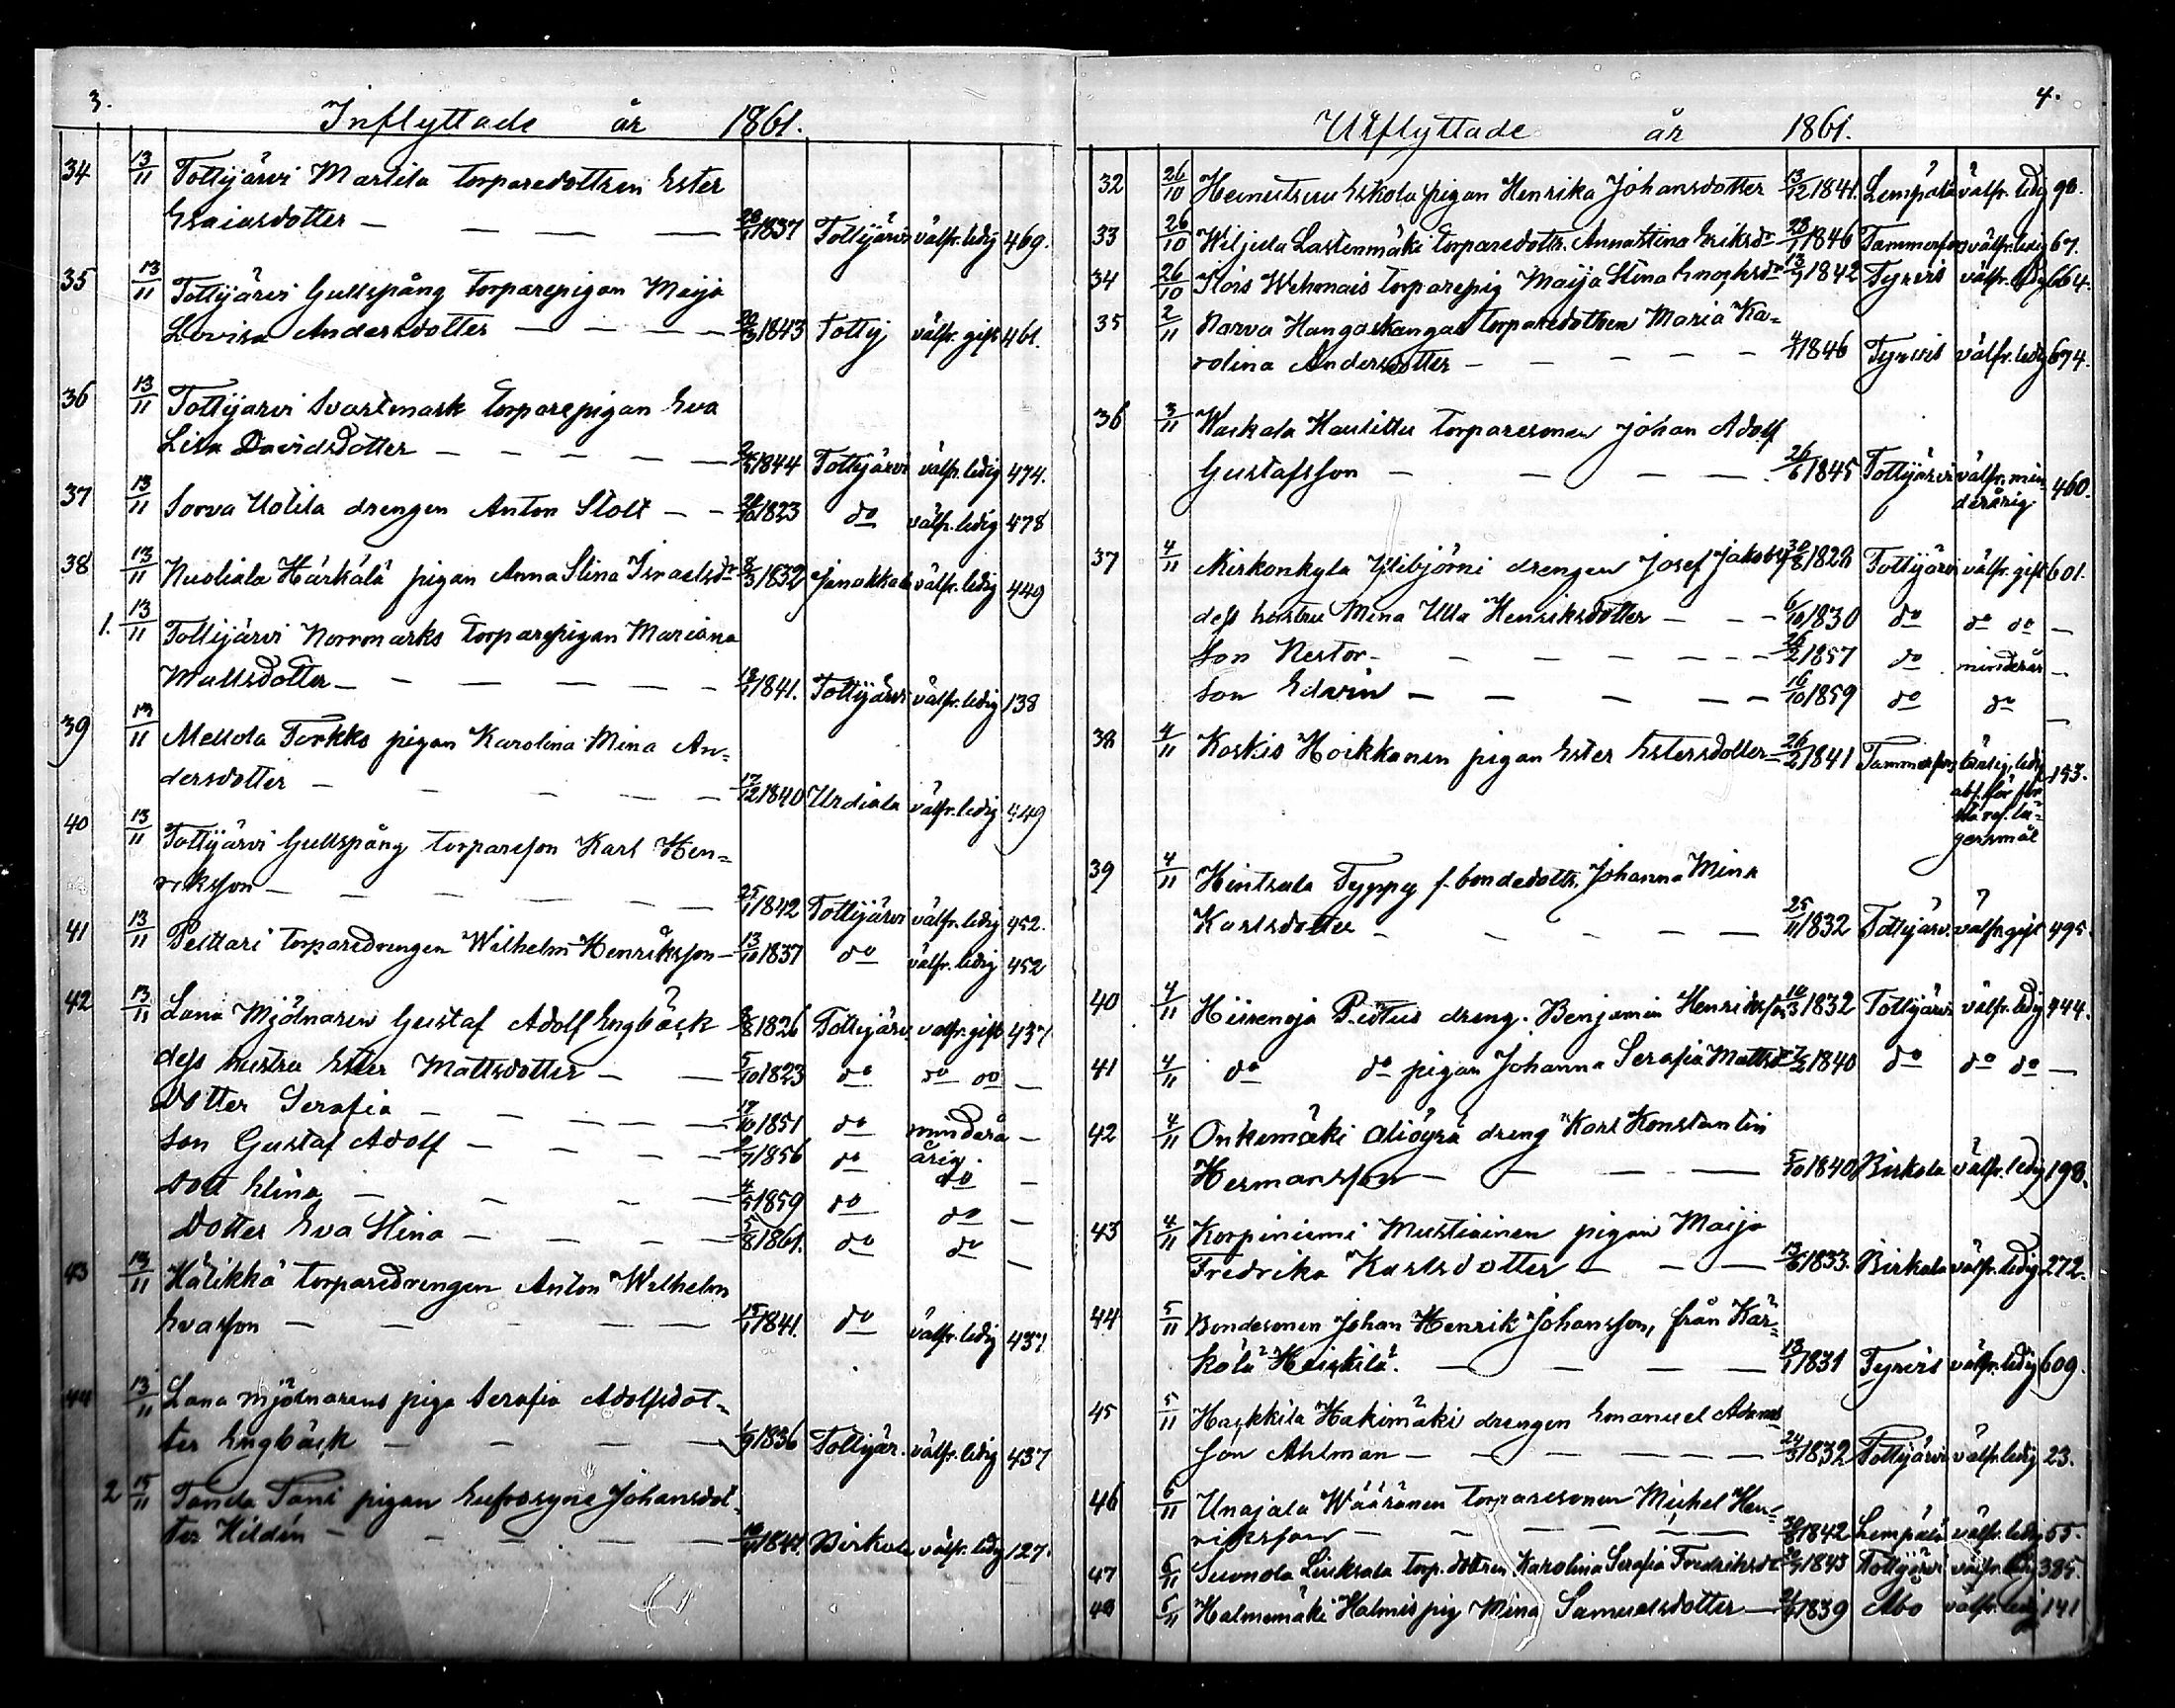 3.
Inflyttade år 1861.
34 13/11 Tottijärvi Martila torparedottren Ester
Esaiasdotter — — — — 1837 Tottijärvi välfr. ledig 469.
35 13/11 Tottijärvi Gullspång torparepigan Maija
Lovisa Andersdotter — — — 1843 Tottij välfr. gift 461.
36 13/11 Tottijärvi Svartmark torparepigan Eva
Lisa Davidsdotter — — — — 1844 Tottijärvi välfr. ledig 474.
37 13/11 Sorva Uotila drengen Anton Stolt — — 1823 do välfr. ledig 478
38 13/11 Nuoliala Härkälä pigan Anna Stina Israelsdr 8/3 1832 Janakkala välfr. ledig 449
1. 13/11 Tottijärvi Norrmarks torparepigan Mariana
Mattsdotter — — — — — 1841. Tottijärvi välfr. ledig 138
39 13/11 Mellola Torkko pigan Karolina Mina An=
dersdotter — — — — 17/12 1840 Urdiala välfr. ledig 449
40 13/11 Tottijärvi Gullspång torpareson Karl Hen=
riksson — — — — — 25/1 1842 Tottijärvi välfr. ledig 452.
41 13/11 Pelttari torparedrengen Wilhelm Henriksson — 13/10 1837 do välfr. ledig 452
42 13/11 Lana Mjölnaren Gustaf Adolf Engbäck 8/8 1826 Tottijärv. välfr. gift 437
dess hustru Ester Mattsdotter — — 5/10 1823 do do do —
Dotter Serafia — — — — 17/10 1851 do minderå —
Son Gustaf Adolf — — — — 1856 do årig.
Dott Elina — — — — 4/5 1859 do do —
Dotter Eva Stina — — — — 5/8 1861. do do —
43 13/11 Hätikkä torparedrengen Anton Wilhelm
Evasson — — — — — 15/1 1841. do välfr. ledig 437
44 13/11 Lana mjölnarens piga Serafia Adolfsdot=
ter Engbäck — — — — 1/9 1836 Tottijär. välfr. ledig 437
2 15/11 Tanila Tani pigan Eufrosyne Johansdot=
ter Hildén — — — — 1844. Birkala välfr. ledig 127.
4.
Utflyttade år 1861.
32 26/10 Heinutsuu Eskola pigan Henrika Johansdotter 13/12 1841. Lempälä välfr. ledig 90.
33 26/10 Wiljula Lastenmäki torparedottr. Anna Stina Eriksdr 23/7 1846 Tammerfors välfr. ledig 67.
34 26/10 Wehmais torparepig Maija Stina Enochsdr 13/9 1842 Tyrvis välfr. ledig 664.
35 2/11 Narva Hangaskangas torparedottren Maria Ka=
rolina Andersdotter — — — — — 1846 Tyrvis välfr. ledig 674.
36 3/11 Waskala Haulittu torparesonen Johan Adolf
Gustafsson — — — — 26/6 1845 Tottijärvi välfr. min
derårig 460.
37 4/11 Mirkonkyla Ylibjörni drengen Josef Jakobsf 30/8 1828 Tottijärvi välfr. gift 601.
dess hustru Mina Ulla Henriksdotter — — — 6/10 1830 do do do —
Son Nestor — — — — — — 26/2 1857 do minderår —
Son Edvin — — — — — 16/10 1859 do do —
38 4/11 Koskis Hoikkanen pigan Ester Estersdotter — 26/2 1841 Tammerfors ledig 153.
abs. för för
sta res. lä=
gersmål
39 4/11 Hintsala Typpy f. bondedottr. Johanna Mina
Karlsdotter — — — — — 25/11 1832 Tottijärv. välfr. gift 495.
40 4/11 Hiirenoja dreng. Benjamin Henriksson 10/3 1832 Tottijärvi välfr. ledig 444.
41 4/11 do do pigan Johanna Serafia Mattsdr 1840 do do do —
42 4/11 Onkemäki Aliöyrä dreng Karl Konstantin
Hermansson — — — — 5/10 1840 Birkala välfr. ledig 198.
43 4/11 Korpiniemi Mustiainen pigan Maija
Fredrika Karlsdotter — — — 13/6 1833. Birkala välfr. ledig 272.
44 5/11 Bondesonen Johan Henrik Johansson, från Kär=
kölä Heikkilä. — — — — 13/1 1831 Tyrvis välfr. ledig 609.
45 5/11 Haikkila Hakimäki drengen Emanuel Adams
son Ahlman — — — — — 24/3 1832 Tottijärvi välfr. ledig 23.
46 6/11 Unajala Wääränen torparesonen Mickel Hen=
riksson — — — — — 1842 Lempälä välfr. ledig 55.
47 6/11 Suonola Liuksala torp. dottren Karolina Serafia Fredriksdr 1843 Tottijärvi välfr. ledig 385.
48 5/11 Halmemäki Halmis pig Mina Samuelsdotter — 1839 Åbo välfr. ledig 141